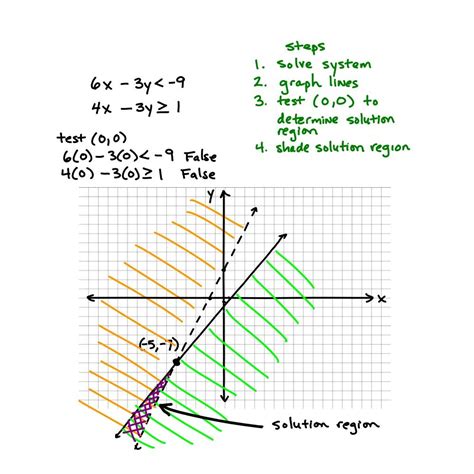 steps
1. solve system
2. graph lines
3. test (0,0) to
determine solution
region
4. shade solution region
6x - 3y < -9
4x - 3y ≥ 1
test (0,0)
6(0) - 3(0) < -9 False
4(0) - 3(0) ≥ 1 False
y
x
(-5,-7)
solution region